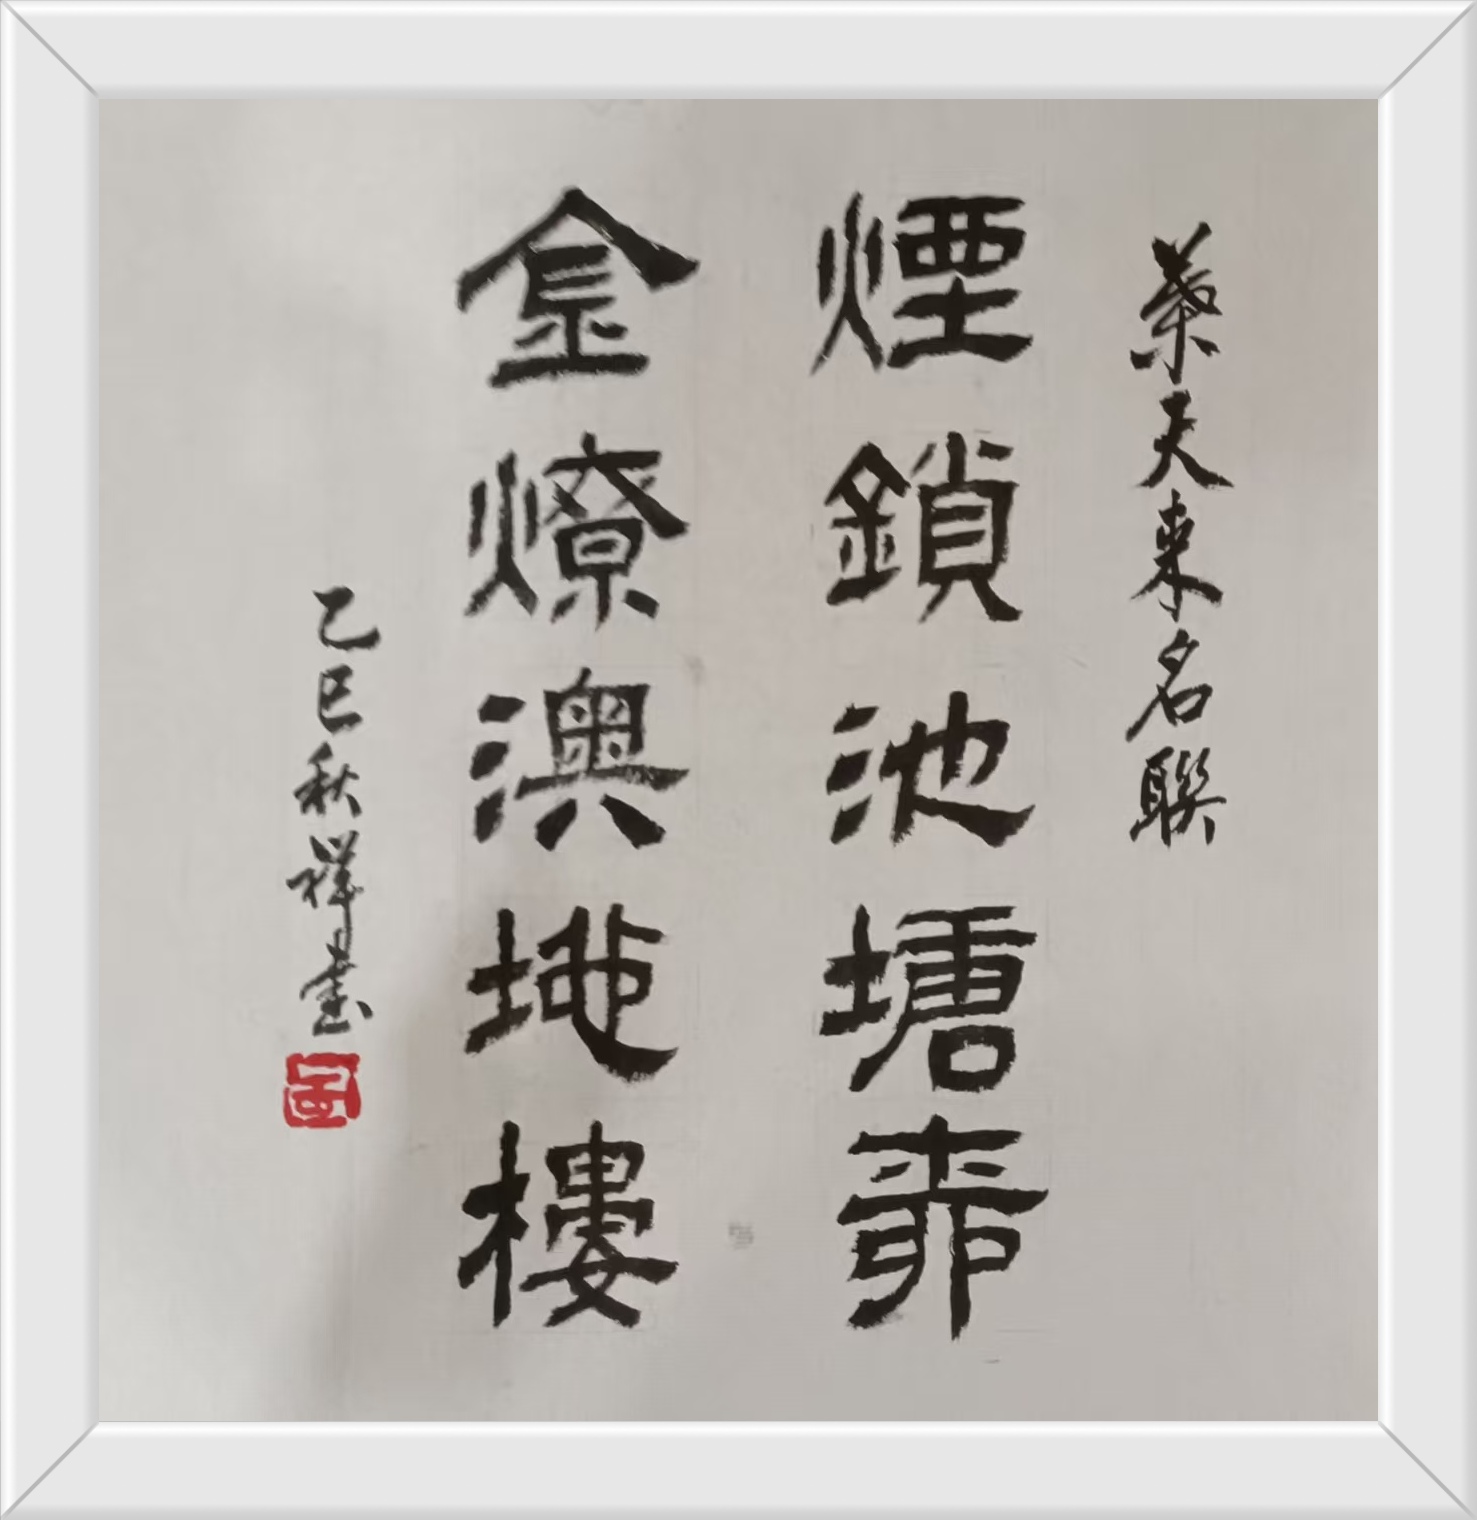 葉天來名聯
煙鎖池塘柳
金燎澳地樓
乙巳秋祥書